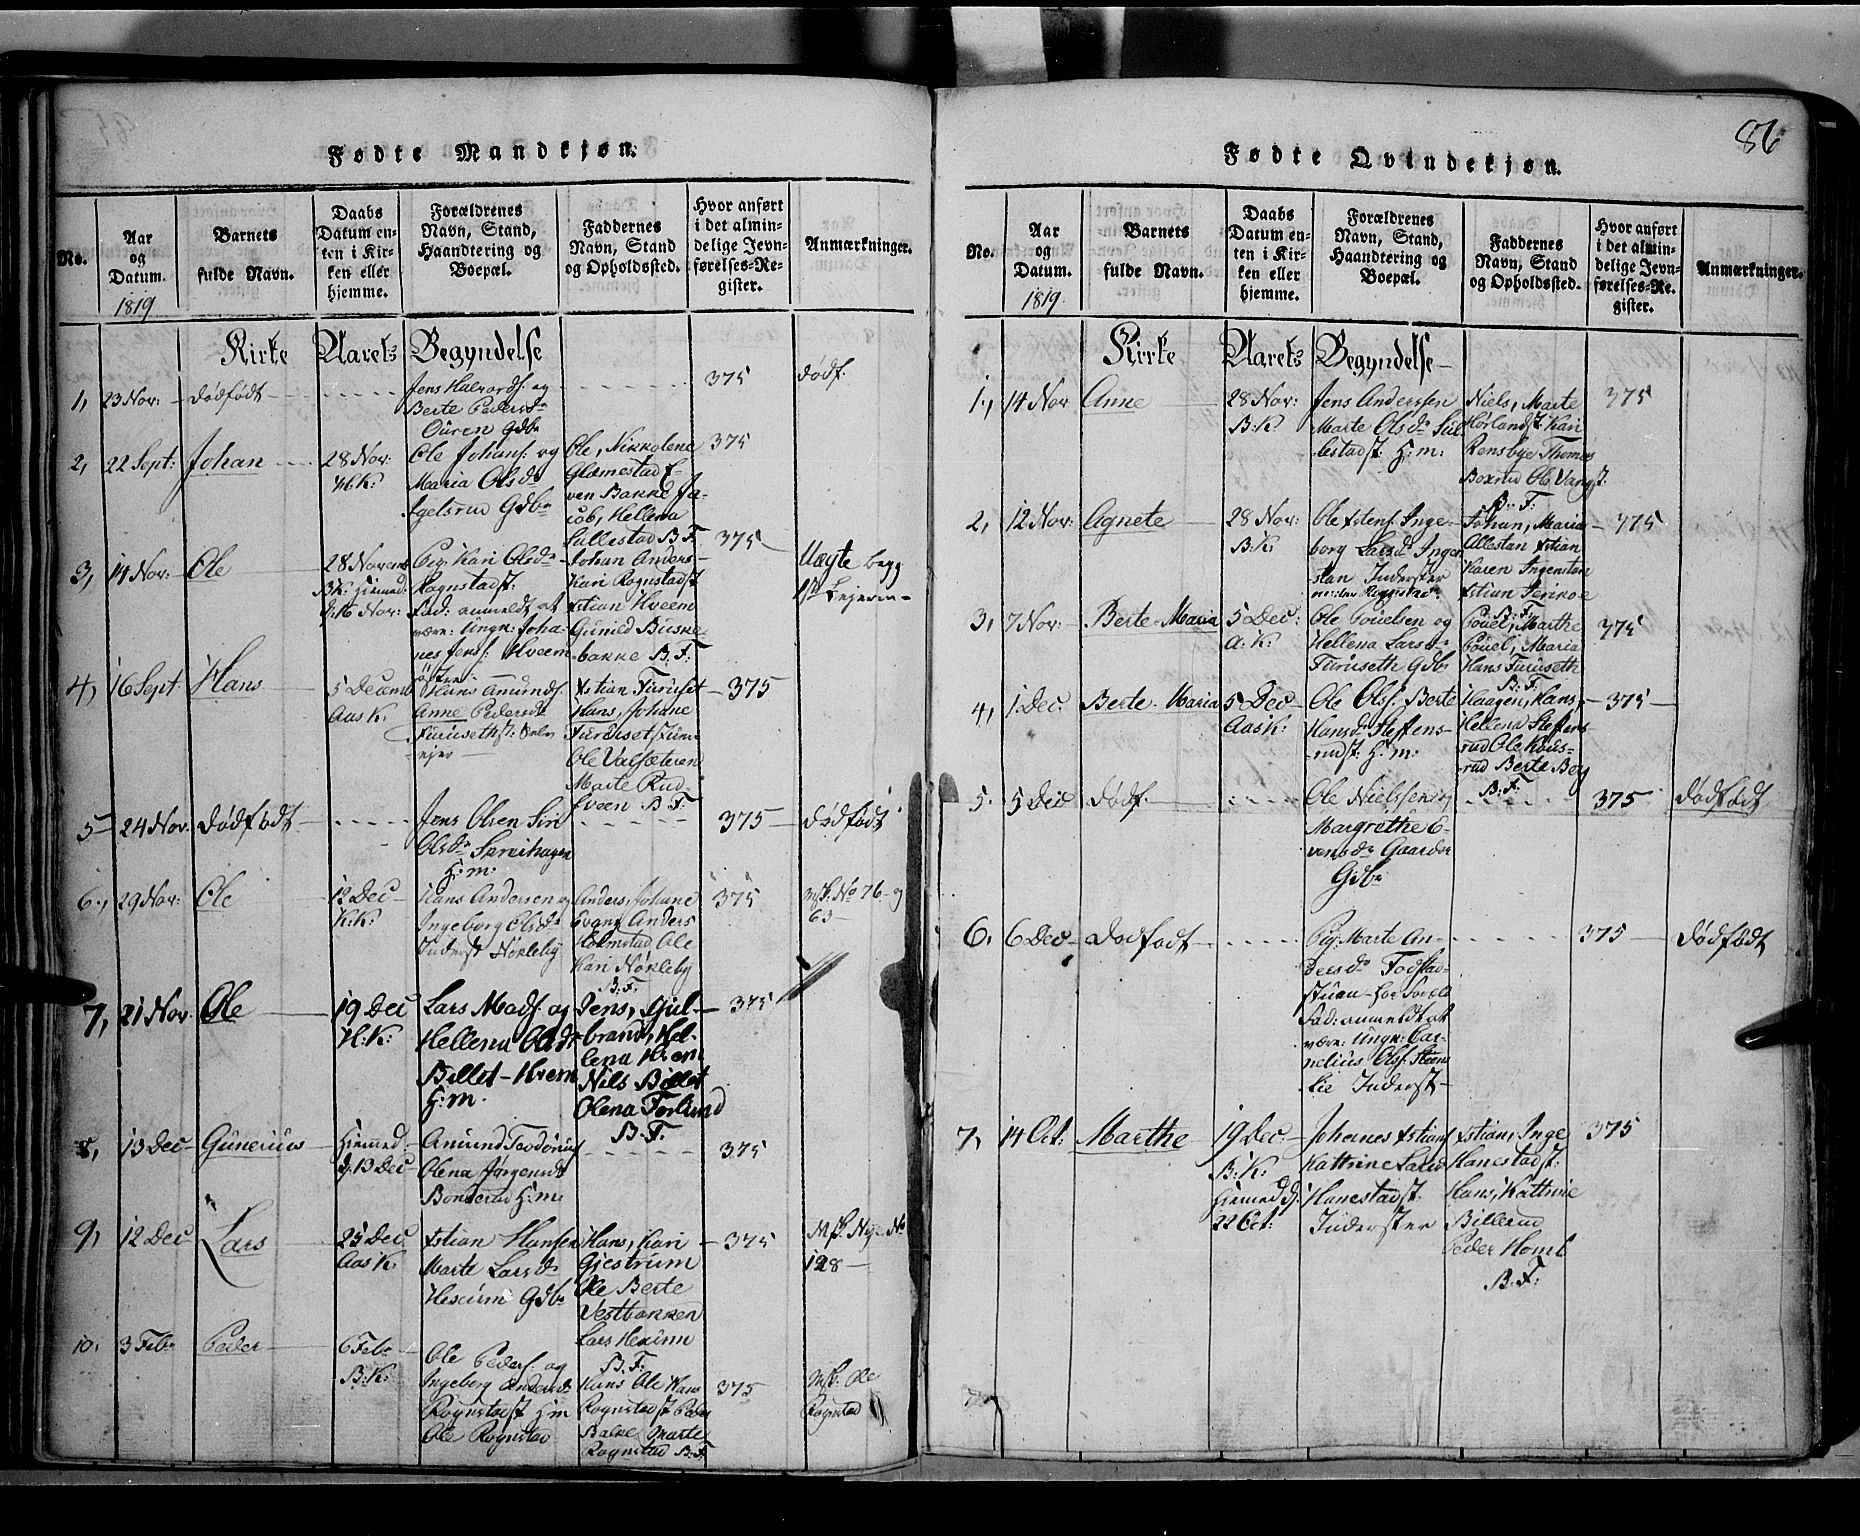 Fødte Mandkjøn.
No.
Aar
og
Datum.
1819
Barnets
fulde Navn.
Daabs
Datum en-
ten i Kir-
ken eller
hjemme.
Forældrenes
Navn, Stand,
Haandtering og
Boepæl.
Faddernes
Navn, Stand
og Opholdssted.
Hvor anført
i det almin-
delige Jevn-
førelses-Re-
gister.
Anmærkninger.
Kirke Aarets Begyndelse
1, 23 Nov: Dødfødt
Jens Halvordf. og
Berte Pedersdr
Ouren Gdbr
375
dødf.
2, 22 Sept: Johan
28 Nov:
H:K:
Ole Johansf. og
Maria Olsdr
Igelsrud Gdbr
Ole, Nikkolene
Glæmestad E-
ven Bakke Ja-
cob, Hellena
Sullestad B.F.
375
3, 14 Nov: Ole
28 Novem
B:K: Hiemed:
d: 16 Nov:
Pig: Kari Olsdr
Rognstadst:
Fad: anmeldt at
være: Ungk: Joha-
nes Jensf: Hveem
Johan Anders
Kari Rognstadst
Xstian Hveem
Gunild Buske-
bakke B.F:
375
Uægte begg
1ste Lejerm-
4, 16 Sept: Hans
5 Decemb
Aas K:
Hans Amundf.
Anne Pedersdr
Furusethst:
Xstian Furuset
Hans, Johane
Furuset
Ole Valsæteren
Marte Rud-
sveen B.F.
375
5 24 Nov. Dødfødt
Jens Olsen Siri
Olsdr
H:m:
375
Dødfødt
6, 29 Nov: Ole
12 Dec
K:K:
Hans Andersen og
Ingeborg Olsdr
Inderst Nøkleby
Anders, Johane
Evang Anders
Holmstad Ole
Kari Nøkleby
B.F.
375
Msk. No 76 og
63
7, 21 Nov. Ole
19 Dec
H:K:
Lars Madsf. og
Hellena Olsdr
Billet-Hvem
H:m.
Jens, Gul-
brand, Hel-
lena Hvem
Nils Billet
Olena Forlund
B.F.
375
8, 13 Dec Gunerius
Hiemed:
d: 13 Dec
Amund Tordsruds
Olena Jørgensdr
Bonderud H:m:
375
9, 12 Dec Lars
25 Dec
Aas K:
Xstian Hansen
Marte Larsdr
Hexum Gdbr
Hans, Kari
Gjestrum
Ole Berte
Vestbakken
Lars Hexum
B.F:
375
Msk. Nye No
128
10. 3 Febr Peder
6 Febr
B:K:
Ole Pedersf. og
Ingeborg Andersdr
Rognstadst H:m
Ole Rognstad
Hans Ole Hans
Rognstadst Peder
Balke Marte
Rognstad B.F.
375
Msk. Ole
Rognstad
86
Fødte Qvindekjøn.
No.
Aar
og
Datum.
1819.
Barnets
fulde Navn.
Daabs
Datum en-
ten i Kir-
ken eller
hjemme.
Forældrenes
Navn, Stand,
Haandtering og
Boepæl.
Faddernes
Navn, Stand
og Opholdssted.
Hvor anført
i det almin-
delige Jevn-
førelses-Re-
gister.
Anmærkninger.
Kirke Aarets Begyndelse
1, 14 Nov Anne
28 Nov:
B:K
Jens Anderssen
Marte Olsdr Sul
lestadst: H:m:
Niels, Marte
Hørlandst: Kari
Rensbye Thomas
Boxrud Ole Vangst:
B.F.
375
2, 12 Nov: Agnete
28 Nov:
B:K:
Ole Xstensf. Inge-
borg Larsdr Ingen
stan Inderster
Johan, Maria
Allestan Xstian
Karen Ingenstan
B.F.
375
3, 7 Nov: Berte-Maria
5 Dec:
A:K:
Ole Pouelsen og
Hellena Larsdr
Furuseth Gdbr
Pouel, Marthe
Pouel, Maria
Hans Furuseth
B.F.
375
4, 1 Dec. Berte-Maria
5 Dec
Aas K:
Ole Olsf. Berte
Hansdr Steffens-
rudst: H:m:
Haagen, Hans,
Hellena Steffens
rud Ole Kous-
rud Berte Berg
B.F.
375
5. 5 Dec Dødf.
Ole Nielssen og
Margrethe E-
vensdr Gaarder
Gdbr
375
Dødfødt
6, 6 Dec Dødfødt
Pig: Marte An-
dersdr Fodstad-
stuen
Fad: anmeldt at
være: Ungk: Cor-
nelius Olsf. Steens
lie Inderst
375
Dødfødt
7, 14 Oct: Marthe
19 Dec:
B:K:
Hiemed d:
22 Oct:
Johannes Xstians
Kattrine Larsd
Hanestadst.
Inderster
Xstian, Inge
Hanestadst:
Hans, Kattrine
Billerud
Peder Homb
B.F:
375